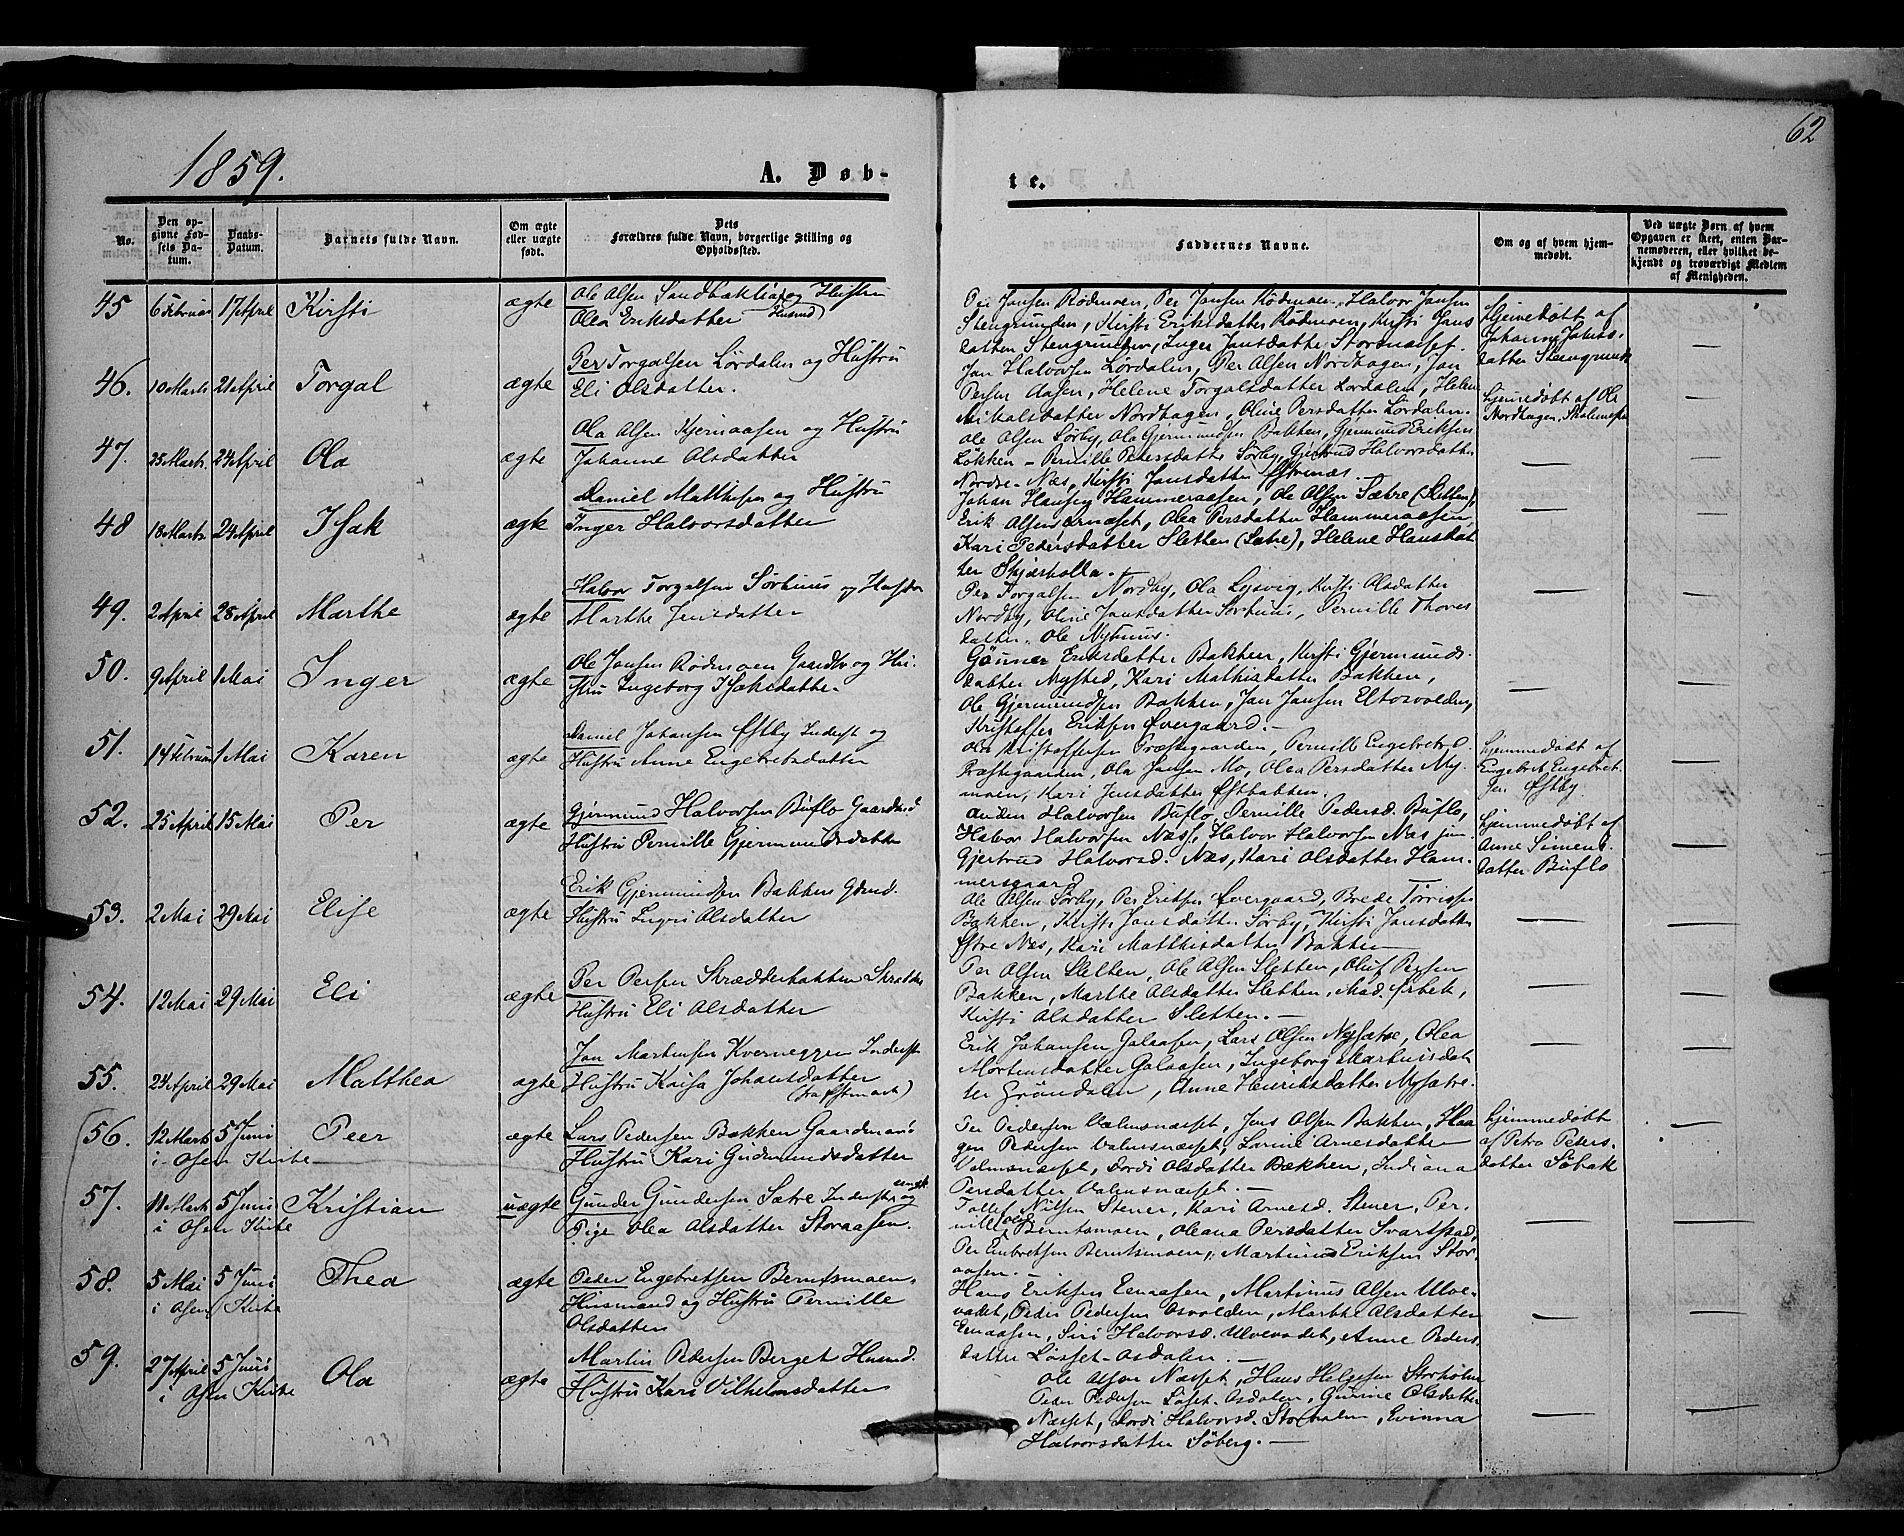 62
1859.
A. Døb-
te.
No.
Den op-
givne Fød-
sels Da-
tum.
Daabs-
Datum.
Barnets fulde Navn.
Om ægte
eller uægte
født.
Dets
Forældres fulde Navn, borgerlige Stilling og
Opholdssted.
Faddernes Navne.
Om og af hvem hjem-
medøbt.
Ved uægte Børn af hvem
Opgaven er skeet, enten Bar-
nemoderen, eller hvilket be-
kjendt og troværdigt Medlem
af Menigheden.
45 6 Februar 17 April Kirsti ægte
Ole Olsen og Hustru
Olea Eriksdatter
Per Jansen Rødmoen, Per Jansen Rødmoen, Halvor Jansen
Stengrunden, Kirsti Eriksdatter Rødmoen, Kirsti Jans
datter Stengrunden, Inger Jansdatter Stornæsset.
Hjemedøbt af
datter
46. 10 Marts 21 April Torgal ægte
Per Torgalsen Lørdalen og Hustru
Eli Olsdatter.
Jan Halvorsen Lørdalen, Per Olsen Nordhagen, Jan
Persen Aasen, Helene Torgalsdatter Lørdalen, Helene
datter Nordhagen, Oline Persdatter Lørdalen.
Hjemedøbt af Ole
Nordhagen,
47. 25 Marts 24 April Ola ægte
Ola Olsen Kjernaasen og Hustru
Johanne Olsdatter
Ole Olsen Sørby, Ola Gjermundsen Bakken, Gjermund Eriksen
Løkken – Pernille Pedersdatter Sørby, Gjertrud Halvorsdatter
Nordre-Næs, Kirsti Jansdatter
48 18 Marts 24 April Isak ægte
Daniel Mathisen og Hustru
Inger Halvorsdatter
Johan Hansen Hammeraasen, Ole Olsen Sætre (Sletten),
Erik Olsen Olea Persdatter Hammeraasen,
Kari Pedersdatter Sletten (Sætre), Helene Hansdat
ter Skjærholla.
49. 2 April 28 April Marthe ægte
Halvor Torgalsen Sørhuus og Hustru
Marthe Jensdatter
Per Torgalsen Nordby, Ola Kirsti Olsdatter
Nordby, Oline Jansdatter Sørhuus, Pernille Thores
datter. Ole Nyhuus.
50. 9 April 1 Mai Inger ægte
Ole Jansen Rødmoen og Hu-
stru Ingeborg Isaksdatter
Eriksdatter Bakken, Kirsti Gjermunds-
datter Nysted, Kari Mathisdatter Bakken,
Ole Gjermundsen Bakken, Jan Jansen
Kristoffer Eriksen Øvergaard. –
51. 14 Februar 1 Mai Karen ægte
Daniel Johansen Østby Inderst og
Hustru Anne Engebretsdatter
Ola Kristoffersen Præstegaarden, Pernille
Præstegaarden, Ola Jansen Mo, Olea Persdatter My-
moen, Kari Jensdatter
Hjemmedøbt af
Engebret Engebret-
sen Østby.
52. 25 April 15 Mai Per ægte
Gjermund Halvorsen Buflo
Hustru Pernille Gjermundsdatter
Halvorsen Buflo, Pernille Pedersd. Buflo,
Halvor Halvorsen Næss, Halvor Halvorsen Næs jun.
Gjertrud Halvorsd. Næs, Kari Olsdatter Ham-
mersgaard
Hjemmedøbt af
Anne Simens-
datter Buflo
53. 2 Mai 29 Mai Elise ægte
Erik Gjermundsen Bakken
Hustru Olsdatter
Ole Olsen Sørby, Per Eriksen Øvergaard, Brede
Bakken, Kirsti Jansdatter Sørby, Kirsti Jansdatter
Østre Næs, Kari Matthisdatter Bakken
54. 12 Mai 29 Mai Eli ægte
Per Persen Skrædderbakken
Hustru Eli Olsdatter
Per Olsen Sletten, Ole Olsen Sletten, Oluf Persen
Bakken, Marthe Olsdatter Sletten, Mad. Ørbek,
Kirsti Olsdatter Sletten. –
55. 24 April 29 Mai Matthea ægte
Jan Martinsen Kverneggen Inderst
Hustru Kaisa Johansdatter
Erik Johansen Galaasen, Lars Olsen Nysætre, Olea
Mortensdatter Galaasen, Ingeborg Martinsdat
ter Grøndalen, Anne Henriksdatter Nysætre.
56. 12 Marts 5 Juni Peer ægte
i Osen Kirke
Lars Pedersen Bækken Gaardmand
Hustru Kari Gudmundsdatter
Per Pedersen Valmsnæsset, Jens Olsen Bakken, Haa
gen Pedersen Valmsnæsset, Lorine Arnesdatter
Valmsnæsset, Dordi Olsdatter Bækken, Indiana
Persdatter Valmsnæsset. –
Hjemmedøbt
af Petra Peders-
datter Søbak
57. 11 Marts 5 Juni Kristian uægte
i Osen Kirke
Gunder Gundersen Sætre Inderst og
Pige Olea Olsdatter Storaasen.
Tollef Nilsen Stener, Kari Arnesd. Stener, Per-
nille Berntsmoen, Oleana Persdatter Svartskad,
Per Embretsen Berntsmoen, Martinus Eriksen Stor-
aasen. –
58. 5 Mai 5 Juni Thea ægte
i Osen Kirke
Peder Engebretsen Berntsmoen,
Husmand og Hustru Pernille
Olsdatter
Hans Eriksen Enaasen, Martinus Olsen Ulve-
vadet, Peder Pedersen Osvolden, Marthe Olsdatter
Enaasen, Siri Halvorsd. Ulvevadet, Anne Peders-
datter Løsset-Osdalen. –
59. 27 April 5 Juni Ola ægte
i Osen Kirke
Martin Pedersen Berget Husmd.
Hustru Kari Vilhelmsdatter
Ole Olsen Næsset, Hans Helgesen Storholm
Peder Pedersen Løset-Osdalen, Gunine Olsdatter
Næsset, Dordi Halvorsd. Storholm,
Halvorsdatter Søberg. –